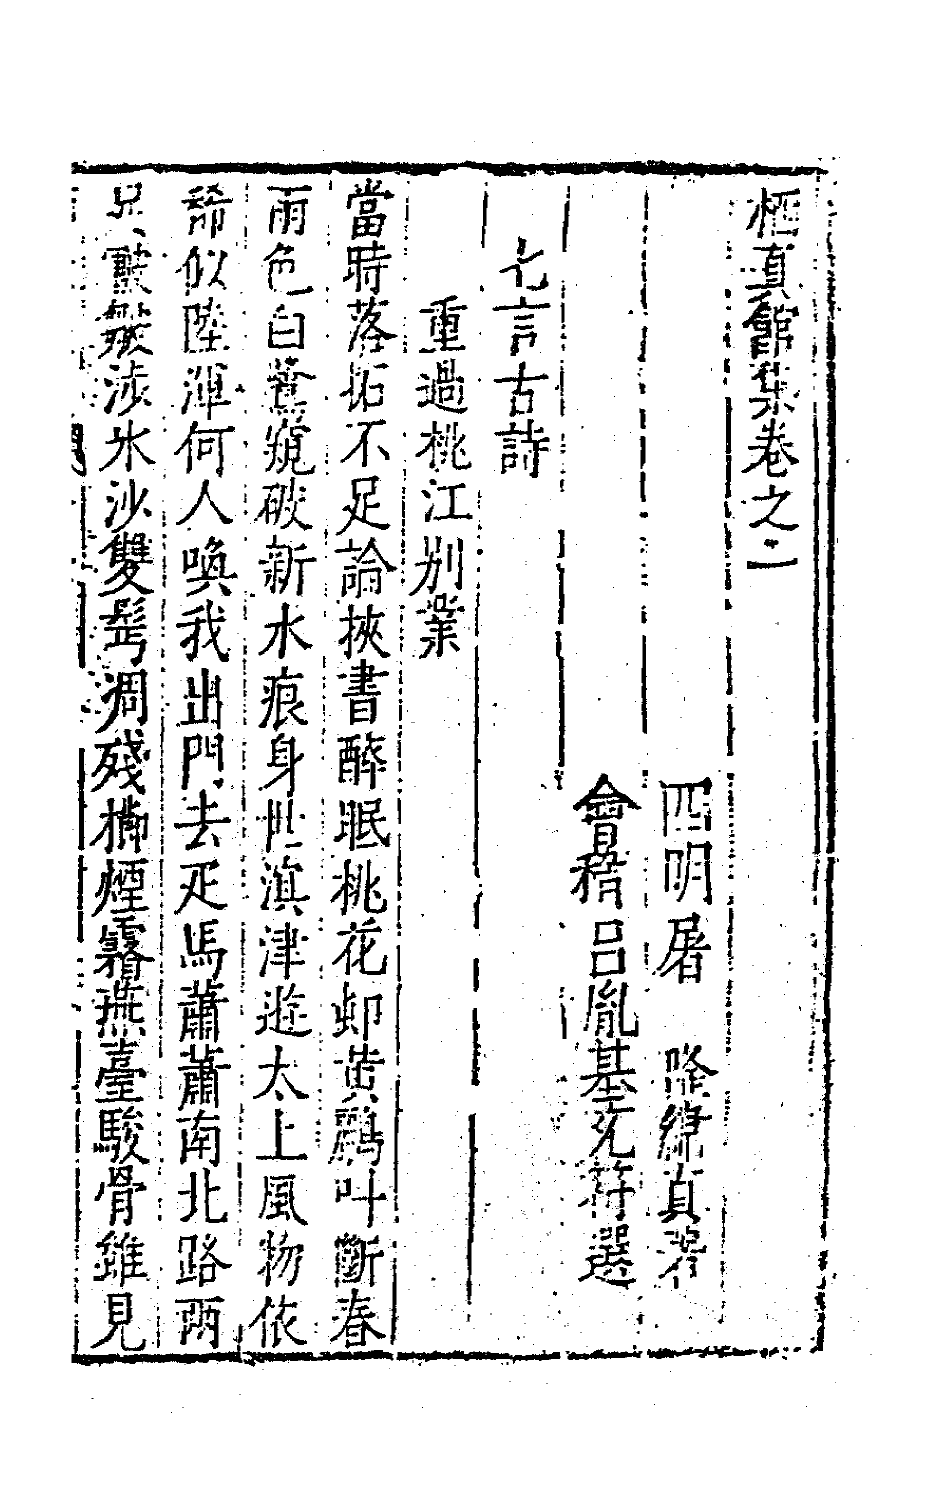 栖真館集卷之二
四明屠　隆緯真著
會稽呂胤基元符選
七言古詩
重過桃江別業
當時落拓不足論挾書醉眠桃花邨黄鸝叶斷春
雨色白鷺窺破新水痕身世滇津遊太上風物依
稀似陸渾何人喚我出門去疋馬蕭蕭南北路兩
足皴皴涉氷沙雙髩凋殘櫛煙霧燕臺駿骨雖見